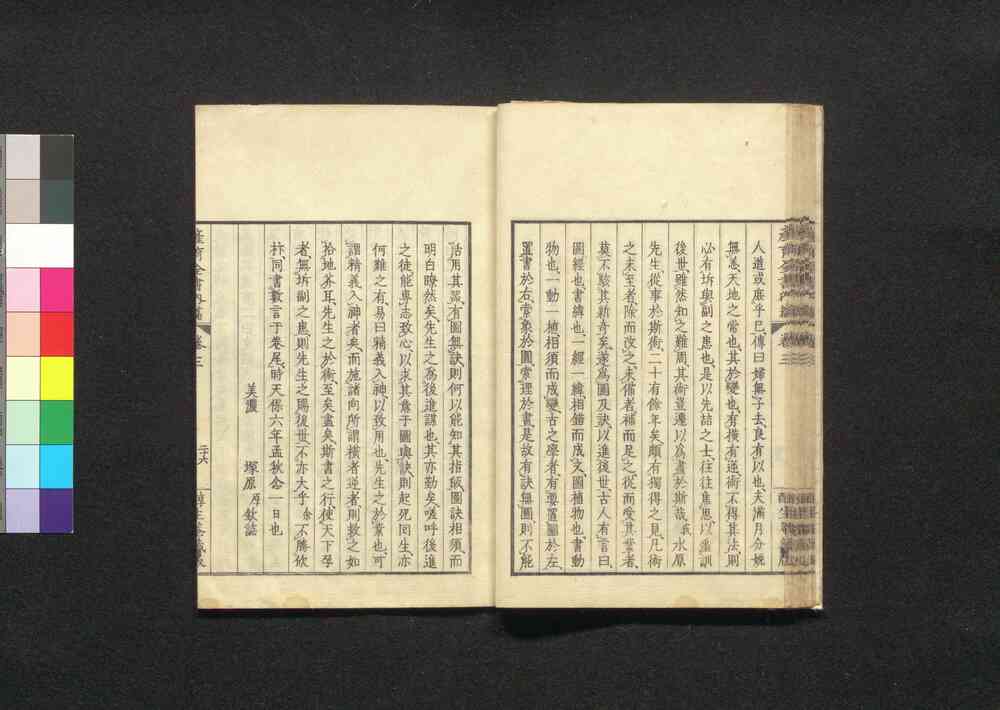 人道或廢乎已、傳曰、婦無子去、良有以也、夫滿月分娩
無恙、天地之常也、其於變也、有橫有逆、術不得其法、則
必有坼與副之患也、是以先喆之士、往往焦思以垂訓
後世、雖然知之難周、其術豈遽以爲盡於斯哉、我水原
先生從事於斯術、二十有餘年矣、頗有獨得之見、凡術
之未至者、除而改之、未備者、補而足之、從而受其業者、
莫不駭其新奇矣、遂爲圖及訣、以進後世、古人有言曰、
圖經也、書緯也、一經一緯、相錯而成文、圖植物也、書動
物也、一動一植、相須而成變、古之學者、有要置圖於左、
置書於右、索象於圖、索理於書、是故有訣無圖、則不能
活用其器、有圖無訣、則何以能知其指緻、圖訣相須、而
明白瞭然矣、先生之爲後進謀也、其亦勤矣、嗟呼後進
之徒、能專志致心、以求其意于圖與訣、則起死回生、亦
何難之有、易曰精義入神、以致用也、先生之於業也、可
謂精義入神者矣、而施諸向所謂橫者逆者、則救之如
拾地芥耳、先生之於術至矣盡矣、斯書之行、使天下孕
者、無坼副之患、則先生之賜後世、不亦大乎、余不勝欣
抃、同書數言于卷尾、時天保六年孟秋念一日也
美濃 塚原 欽誌
產育全書內篇 卷三 二十六